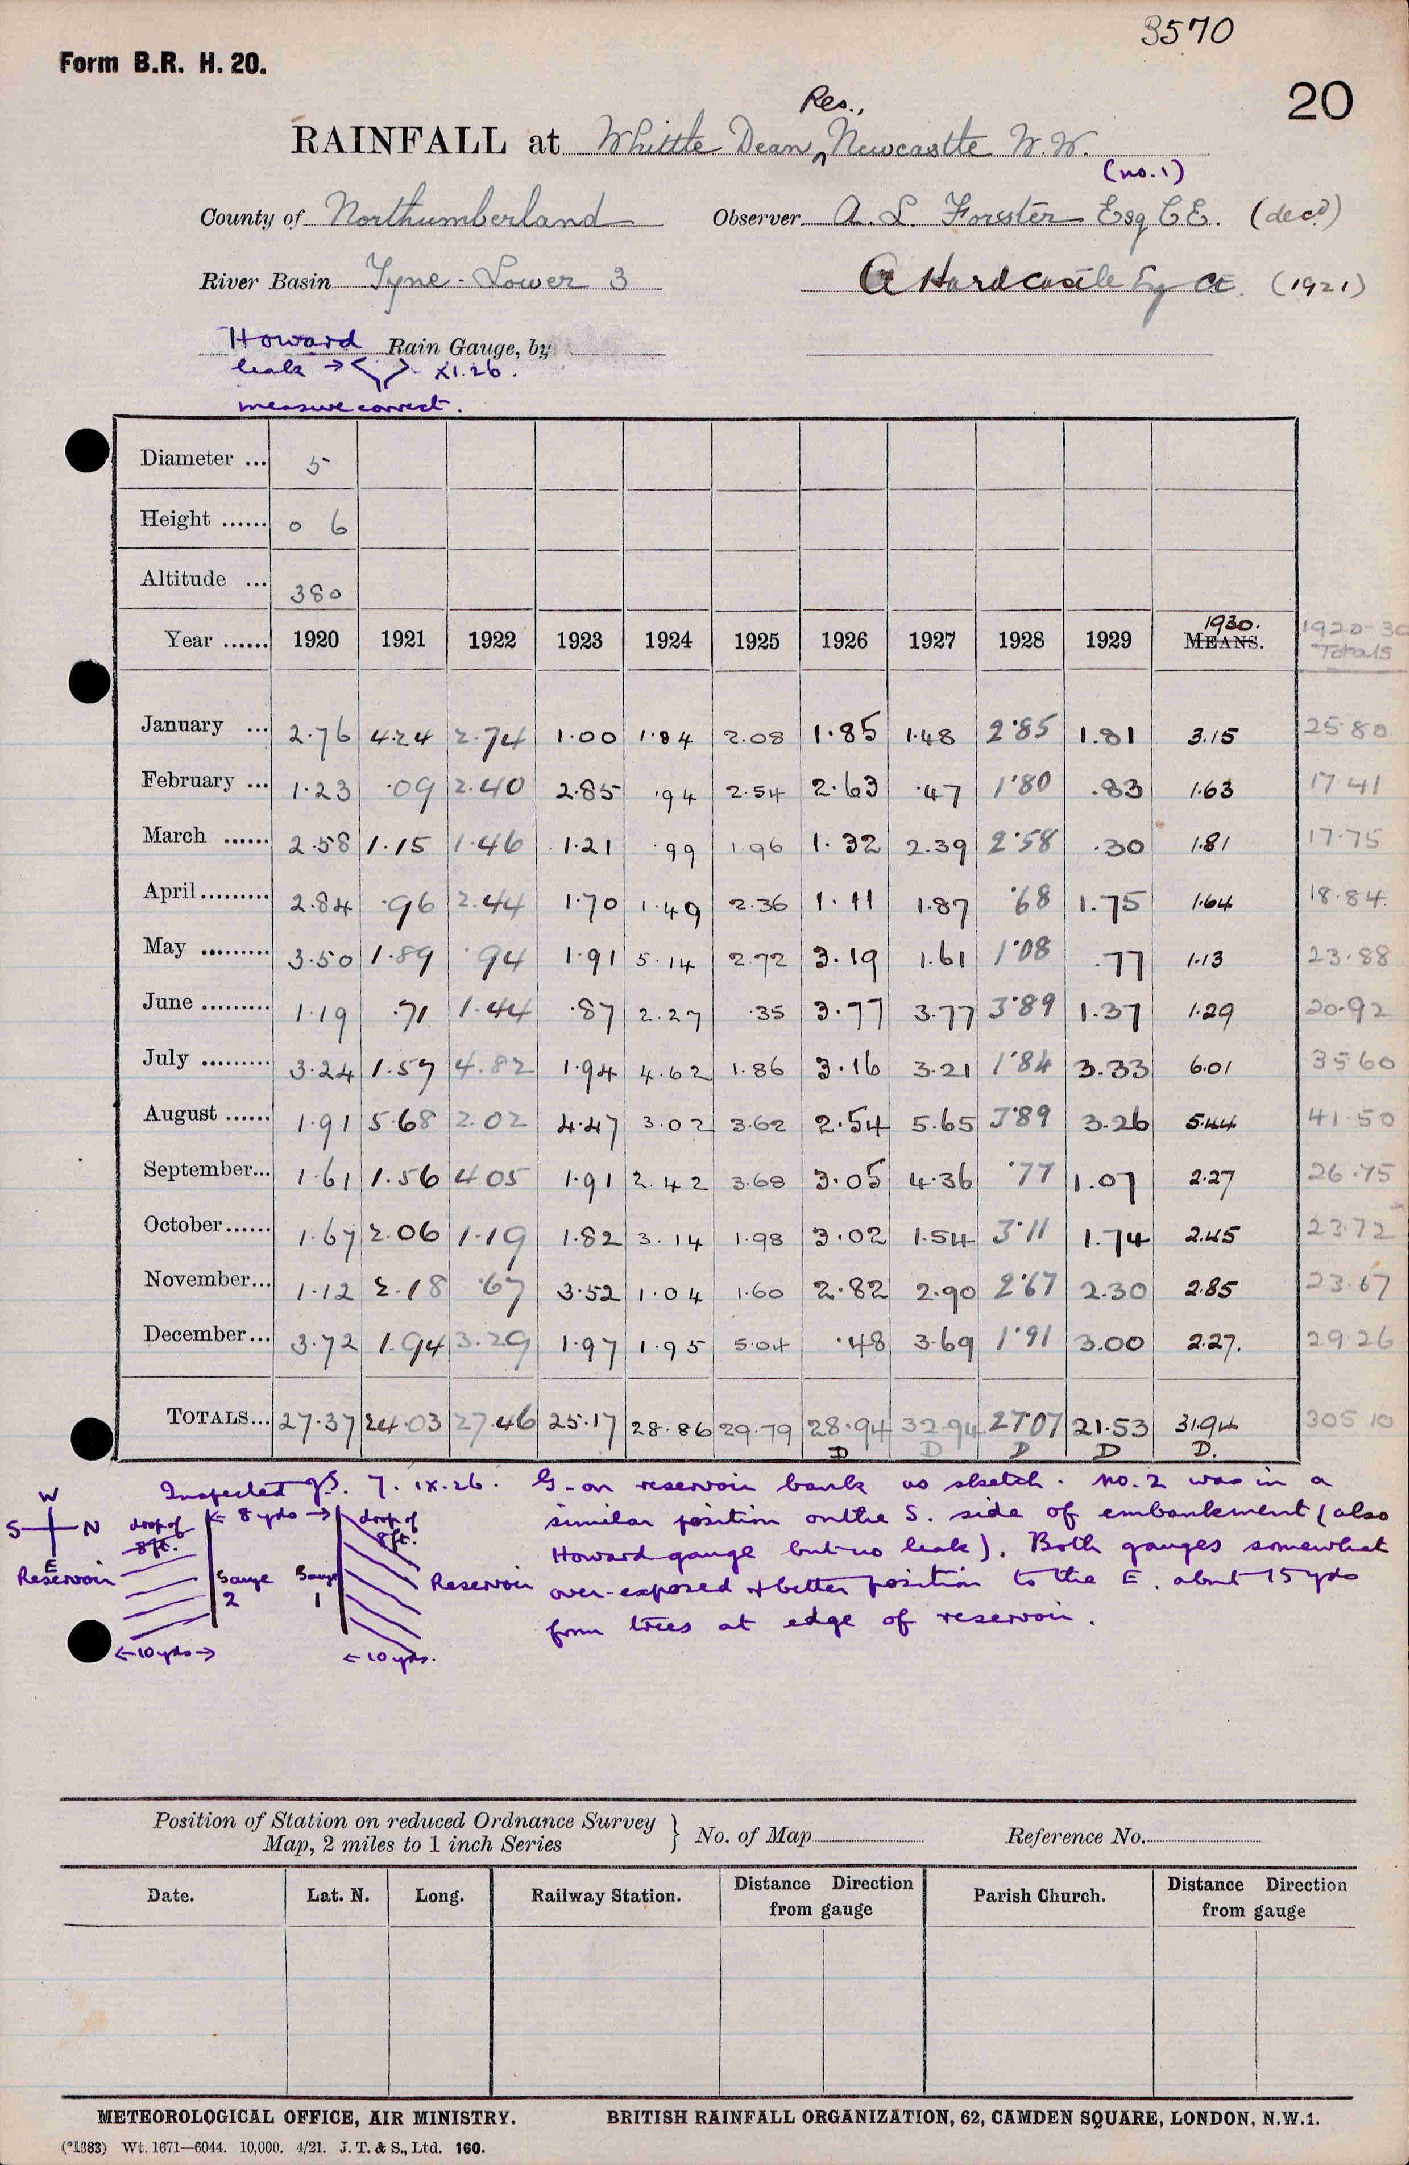 3570
Form B.R. H. 20.
20
Res.,
RAINFALL at Whittle Dean ‸ Newcastle W.W.
(no.1)
County of Northumberland Observer A. L. Forster Esq C.E. (decd)
River Basin Tyne - Lower 3 A Hardcastle Esq CE. (1921)
Howard Rain Gauge, by
leak → XI.26.
measure correct.
Diameter ... 5
Height ...... 0 6
Altitude ... 380
1930. 1920-30
Year ...... 1920 1921 1922 1923 1924 1925 1926 1927 1928 1929 MEANS. Totals
January ... 2.76 4.24 2.74 1.00 1.84 2.08 1.85 1.48 2.85 1.81 3.15 25.80
February ... 1.23 .09 2.40 2.85 .94 2.54 2.63 .47 1.80 .83 1.63 17.41
March ...... 2.58 1.15 1.46 1.21 .99 1.96 1.32 2.39 2.58 .30 1.81 17.75
April ......... 2.84 .96 2.44 1.70 1.49 2.36 1.11 1.87 .68 1.75 1.64 18.84
May ......... 3.50 1.89 .94 1.91 5.14 2.72 3.19 1.61 1.08 .77 1.13 23.88
June ......... 1.19 .71 1.44 .87 2.27 .35 3.77 3.77 3.89 1.37 1.29 20.92
July ......... 3.24 1.57 4.82 1.94 4.62 1.86 3.16 3.21 1.84 3.33 6.01 35.60
August ...... 1.91 5.68 2.02 4.47 3.02 3.62 2.54 5.65 3.89 3.26 5.44 41.50
September... 1.61 1.56 4.05 1.91 2.42 3.68 3.05 4.36 .77 1.07 2.27 26.75
October...... 1.67 2.06 1.19 1.82 3.14 1.98 3.02 1.54 3.11 1.74 2.45 23.72
November... 1.12 2.18 .67 3.52 1.04 1.60 2.82 2.90 2.67 2.30 2.85 23.67
December... 3.72 1.94 3.29 1.97 1.95 5.04 .48 3.69 1.91 3.00 2.27. 29.26
TOTALS... 27.37 24.03 27.46 25.17 28.86 29.79 28.94 32.94 27.07 21.53 31.94 305.10
D D D D D.
Inspected 7. IX.26. G. on reservoir bank as sketch. No. 2 was in a
similar position on the S. side of embankment (also
Howard gauge but no leak). Both gauges somewhat
over-exposed & better position to the E. about 15 yds
from trees at edge of reservoir.
W
S N
E
drop of
8ft.
← 8 yds →
drop of
8ft.
Reservoir
Gauge
2
Gauge
1
Reservoir
←10 yds→
←10 yds.
Position of Station on reduced Ordnance Survey
Map, 2 miles to 1 inch Series } No. of Map Reference No.
Date. Lat. N. Long. Railway Station. Distance Direction
from gauge Parish Church. Distance Direction
from gauge
METEOROLOGICAL OFFICE, AIR MINISTRY. BRITISH RAINFALL ORGANIZATION, 62, CAMDEN SQUARE, LONDON, N.W.1.
(*1383) Wt. 1671—6044. 10,000. 4/21. J. T. & S., Ltd. 160.